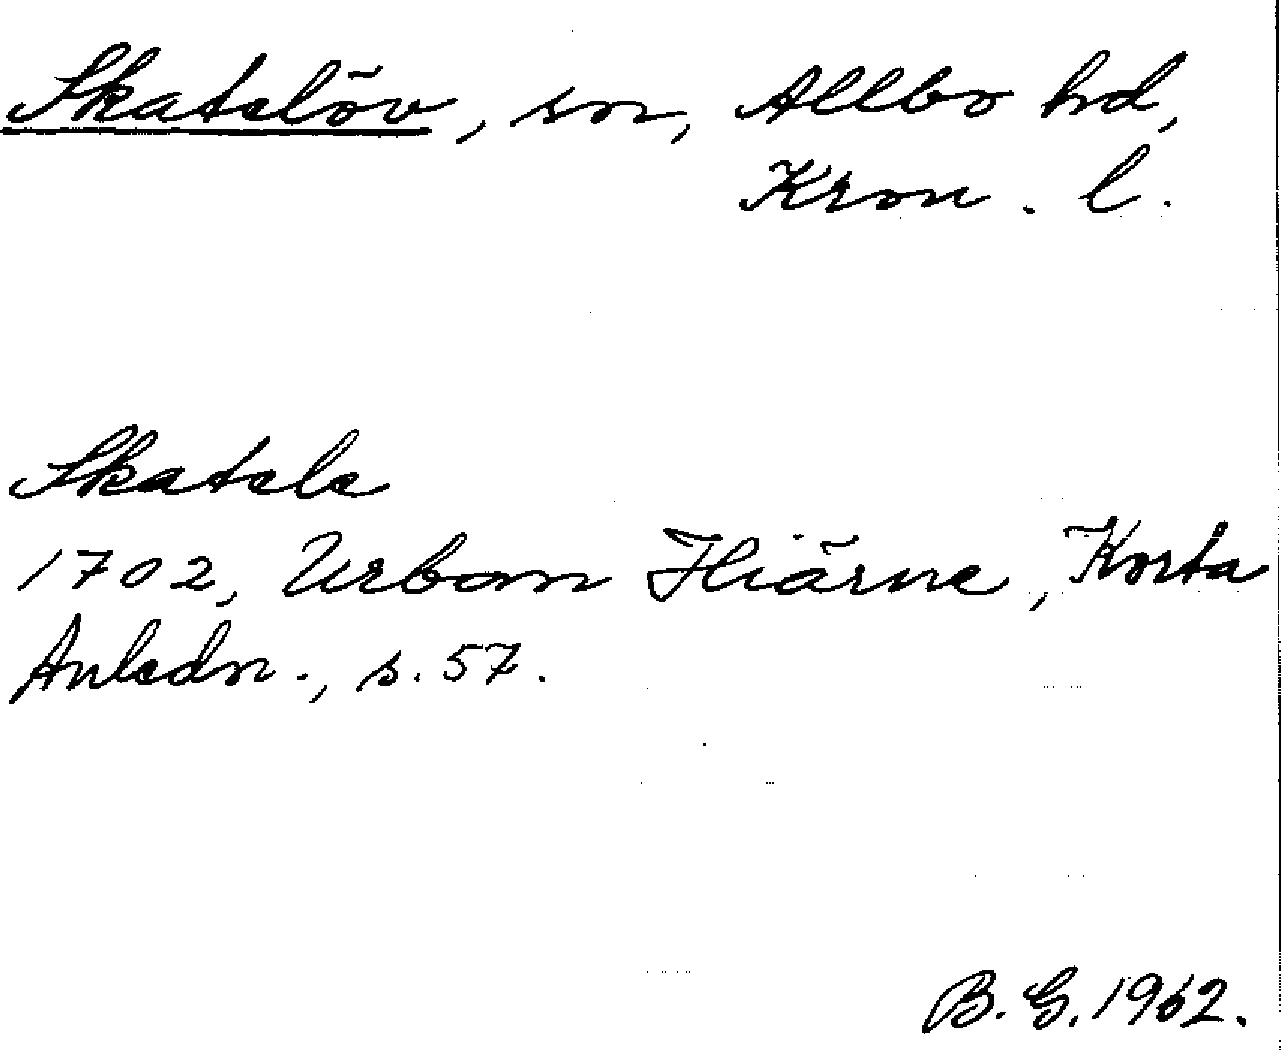 Skatelöv, sn, Allbo hd,
Kron. l.
Skatele
1702, Urban Hiärne, Korta
Anledn., s. 57.
B. G. 1962.